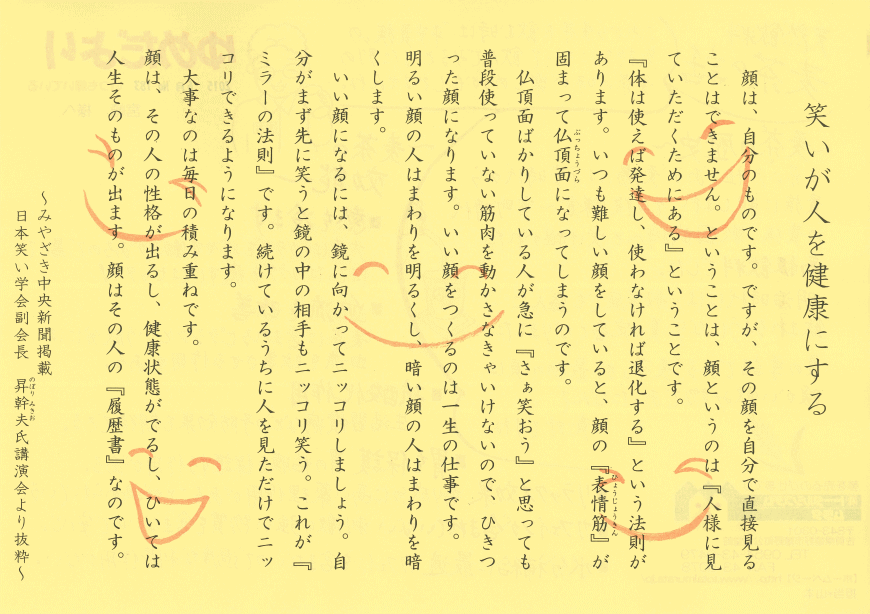 笑いが人を健康にする
顔は、自分のものです。ですが、その顔を自分で直接見る
ことはできません。ということは、顔というのは『人様に見
ていただくためにある』ということです。
『体は使えば発達し、使わなければ退化する』という法則が
あります。いつも難しい顔をしていると、顔の『表情筋』が
ひょうじょうきん
固まって仏頂面になってしまうのです。
ぶっちょうづら
仏頂面ばかりしている人が急に『さぁ笑おう』と思っても
普段使っていない筋肉を動かさなきゃいけないので、ひきつ
った顔になります。いい顔をつくるのは一生の仕事です。
明るい顔の人はまわりを明るくし、暗い顔の人はまわりを暗
くします。
いい顔になるには、鏡に向かってニッコリしましょう。自
分がまず先に笑うと鏡の中の相手もニッコリ笑う。これが『
ミラーの法則』です。続けているうちに人を見ただけでニッ
コリできるようになります。
大事なのは毎日の積み重ねです。
顔は、その人の性格が出るし、健康状態がでるし、ひいては
人生そのものが出ます。顔はその人の『履歴書』なのです。
～みやざき中央新聞掲載
日本笑い学会副会長 昇幹夫氏講演会より抜粋～
のぼり みきお
ゆめだより